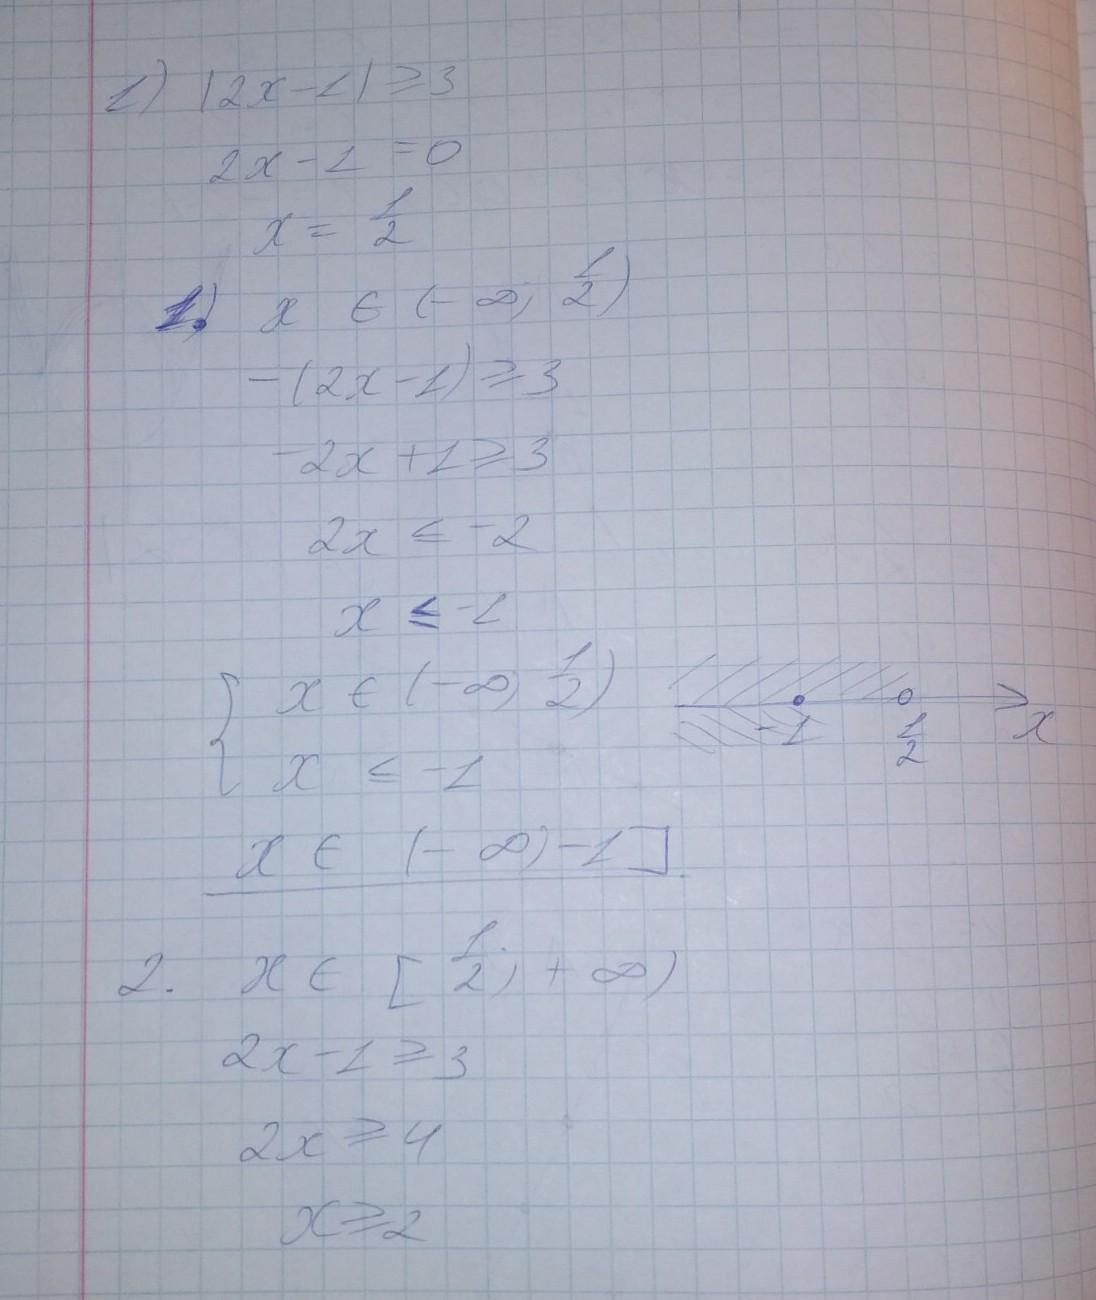 1) |2x-1| ≥ 3
2x-1 = 0
x = 1/2
1. x ∈ (-∞; 1/2)
-(2x-1) ≥ 3
-2x+1 ≥ 3
2x ≤ -2
x ≤ -1
{ x ∈ (-∞; 1/2)
x ≤ -1
-1 1/2 x
x ∈ (-∞; -1]
2. x ∈ [1/2; +∞)
2x-1 ≥ 3
2x ≥ 4
x ≥ 2